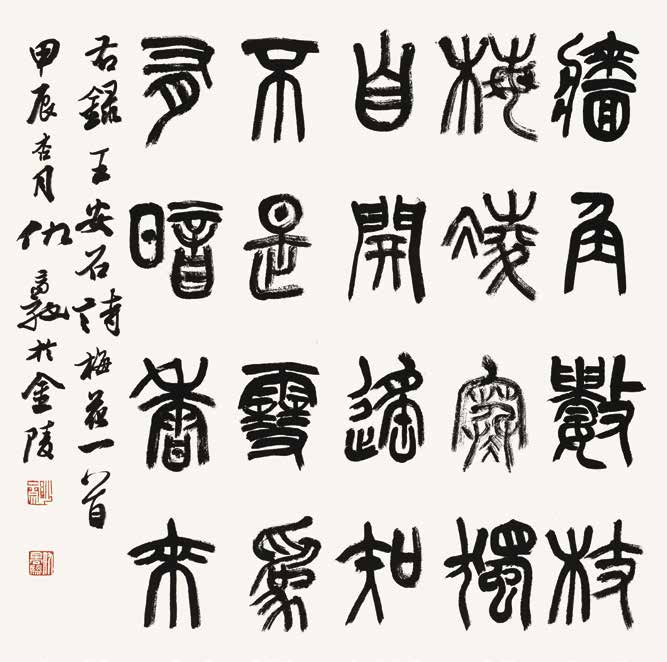 牆角數枝
梅凌寒獨
自開遙知
不是雪爲
有暗香來
右錄王安石詩梅花一首
甲辰杏月仇高馳於金陵